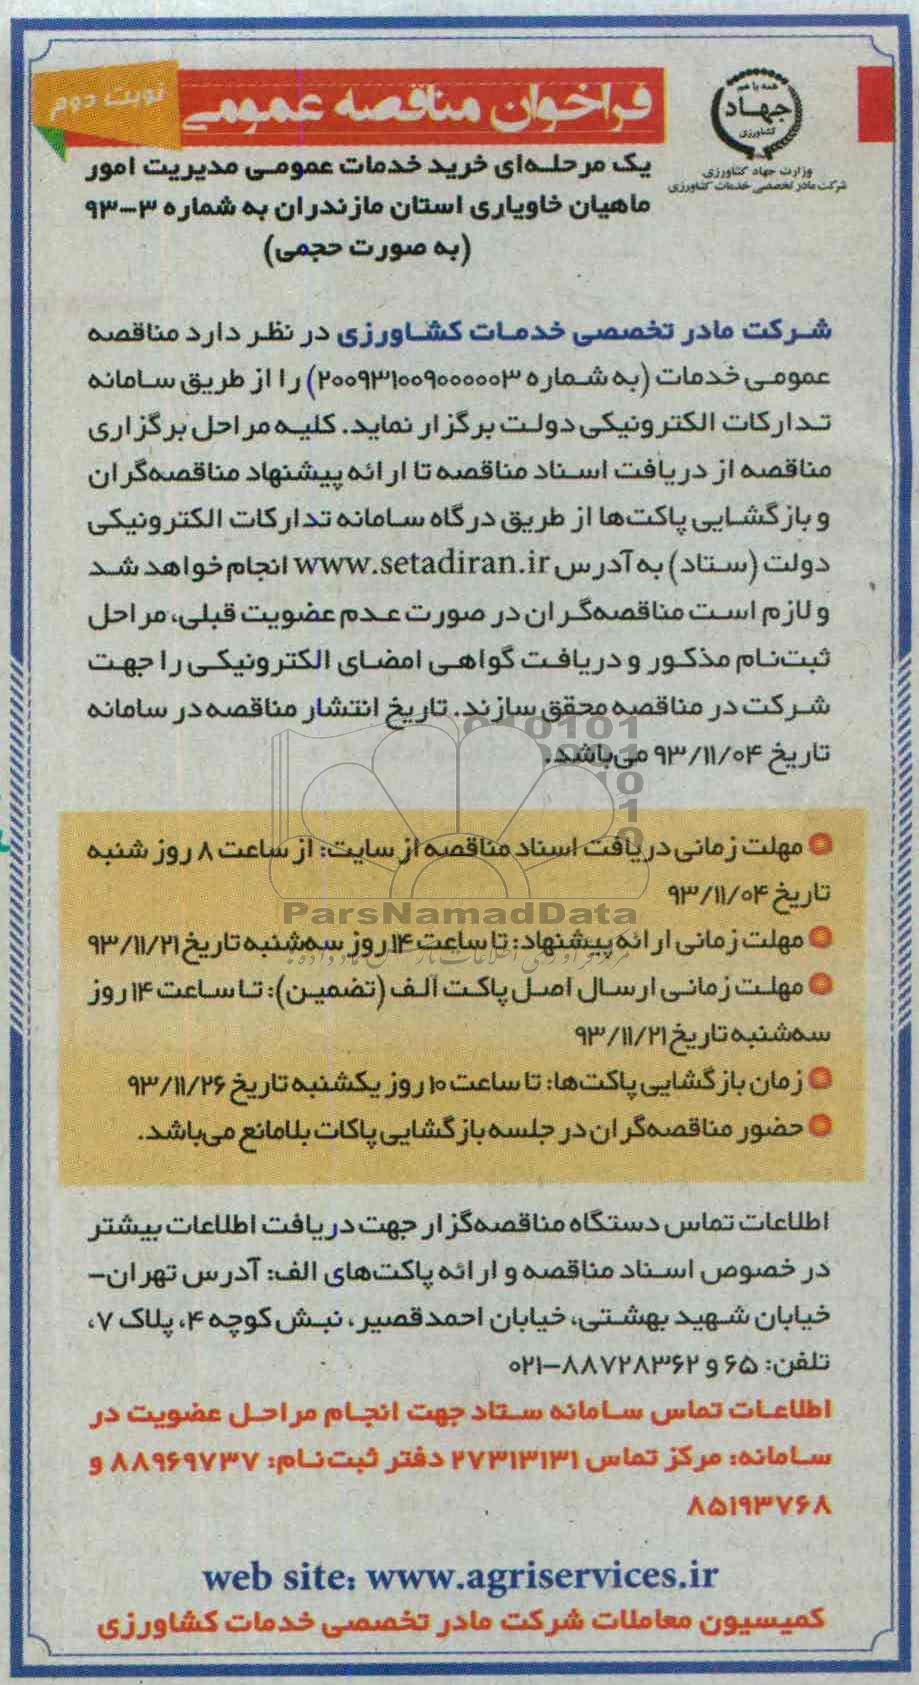 نوبت دوم
فراخوان مناقصه عمومی
همه با هم
جهاد
کشاورزی
وزارت جهاد کشاورزی
شرکت مادر تخصصی خدمات کشاورزی
یک مرحله‌ای خرید خدمات عمومی مدیریت امور
ماهیان خاویاری استان مازندران به شماره ۳-۹۳
(به صورت حجمی)
شرکت مادر تخصصی خدمات کشاورزی در نظر دارد مناقصه
عمومی خدمات (به شماره ۲۰۰۹۳۱۰۰۹۰۰۰۰۰۳) را از طریق سامانه
تدارکات الکترونیکی دولت برگزار نماید. کلیه مراحل برگزاری
مناقصه از دریافت اسناد مناقصه تا ارائه پیشنهاد مناقصه‌گران
و بازگشایی پاکت‌ها از طریق درگاه سامانه تدارکات الکترونیکی
دولت (ستاد) به آدرس www.setadiran.ir انجام خواهد شد
و لازم است مناقصه‌گران در صورت عدم عضویت قبلی، مراحل
ثبت‌نام مذکور و دریافت گواهی امضای الکترونیکی را جهت
شرکت در مناقصه محقق سازند. تاریخ انتشار مناقصه در سامانه
تاریخ ۹۳/۱۱/۰۴ می‌باشد.
مهلت زمانی دریافت اسناد مناقصه از سایت: از ساعت ۸ روز شنبه
تاریخ ۹۳/۱۱/۰۴
ParsNamadData
مهلت زمانی ارائه پیشنهاد: تا ساعت ۱۴ روز سه‌شنبه تاریخ ۹۳/۱۱/۲۱
مهلت زمانی ارسال اصل پاکت الف (تضمین): تا ساعت ۱۴ روز
سه‌شنبه تاریخ ۹۳/۱۱/۲۱
زمان بازگشایی پاکت‌ها: تا ساعت ۱۰ روز یکشنبه تاریخ ۹۳/۱۱/۲۶
حضور مناقصه‌گران در جلسه بازگشایی پاکات بلامانع می‌باشد.
اطلاعات تماس دستگاه مناقصه‌گزار جهت دریافت اطلاعات بیشتر
در خصوص اسناد مناقصه و ارائه پاکت‌های الف: آدرس تهران-
خیابان شهید بهشتی، خیابان احمدقصیر، نبش کوچه ۴، پلاک ۷،
تلفن: ۶۵ و ۸۸۷۲۸۳۶۲-۰۲۱
اطلاعات تماس سامانه ستاد جهت انجام مراحل عضویت در
سامانه: مرکز تماس ۲۷۳۱۳۱۳۱ دفتر ثبت‌نام: ۸۸۹۶۹۷۳۷ و
۸۵۱۹۳۷۶۸
web site: www.agriservices.ir
کمیسیون معاملات شرکت مادر تخصصی خدمات کشاورزی